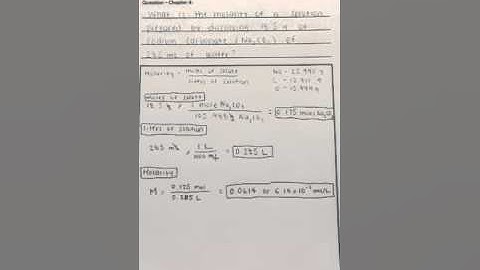 Question - Chapter 4:
What is the molarity of a solution
prepared by dissolving 18.5 g of
sodium carbonate (Na₂CO₃) of
285 mL of water?
Molarity = moles of solute / Litres of solution
Na = 22.990 g
moles of solute
18.5 g × 1 mole Na₂CO₃ / Na₂CO₃ = 0.175 moles
Litres of solution
285 mL × 1 L / 1000 mL = 0.285 L
Molarity
M = 0.175 mol / 0.285 L = 0.0614 or mol/L